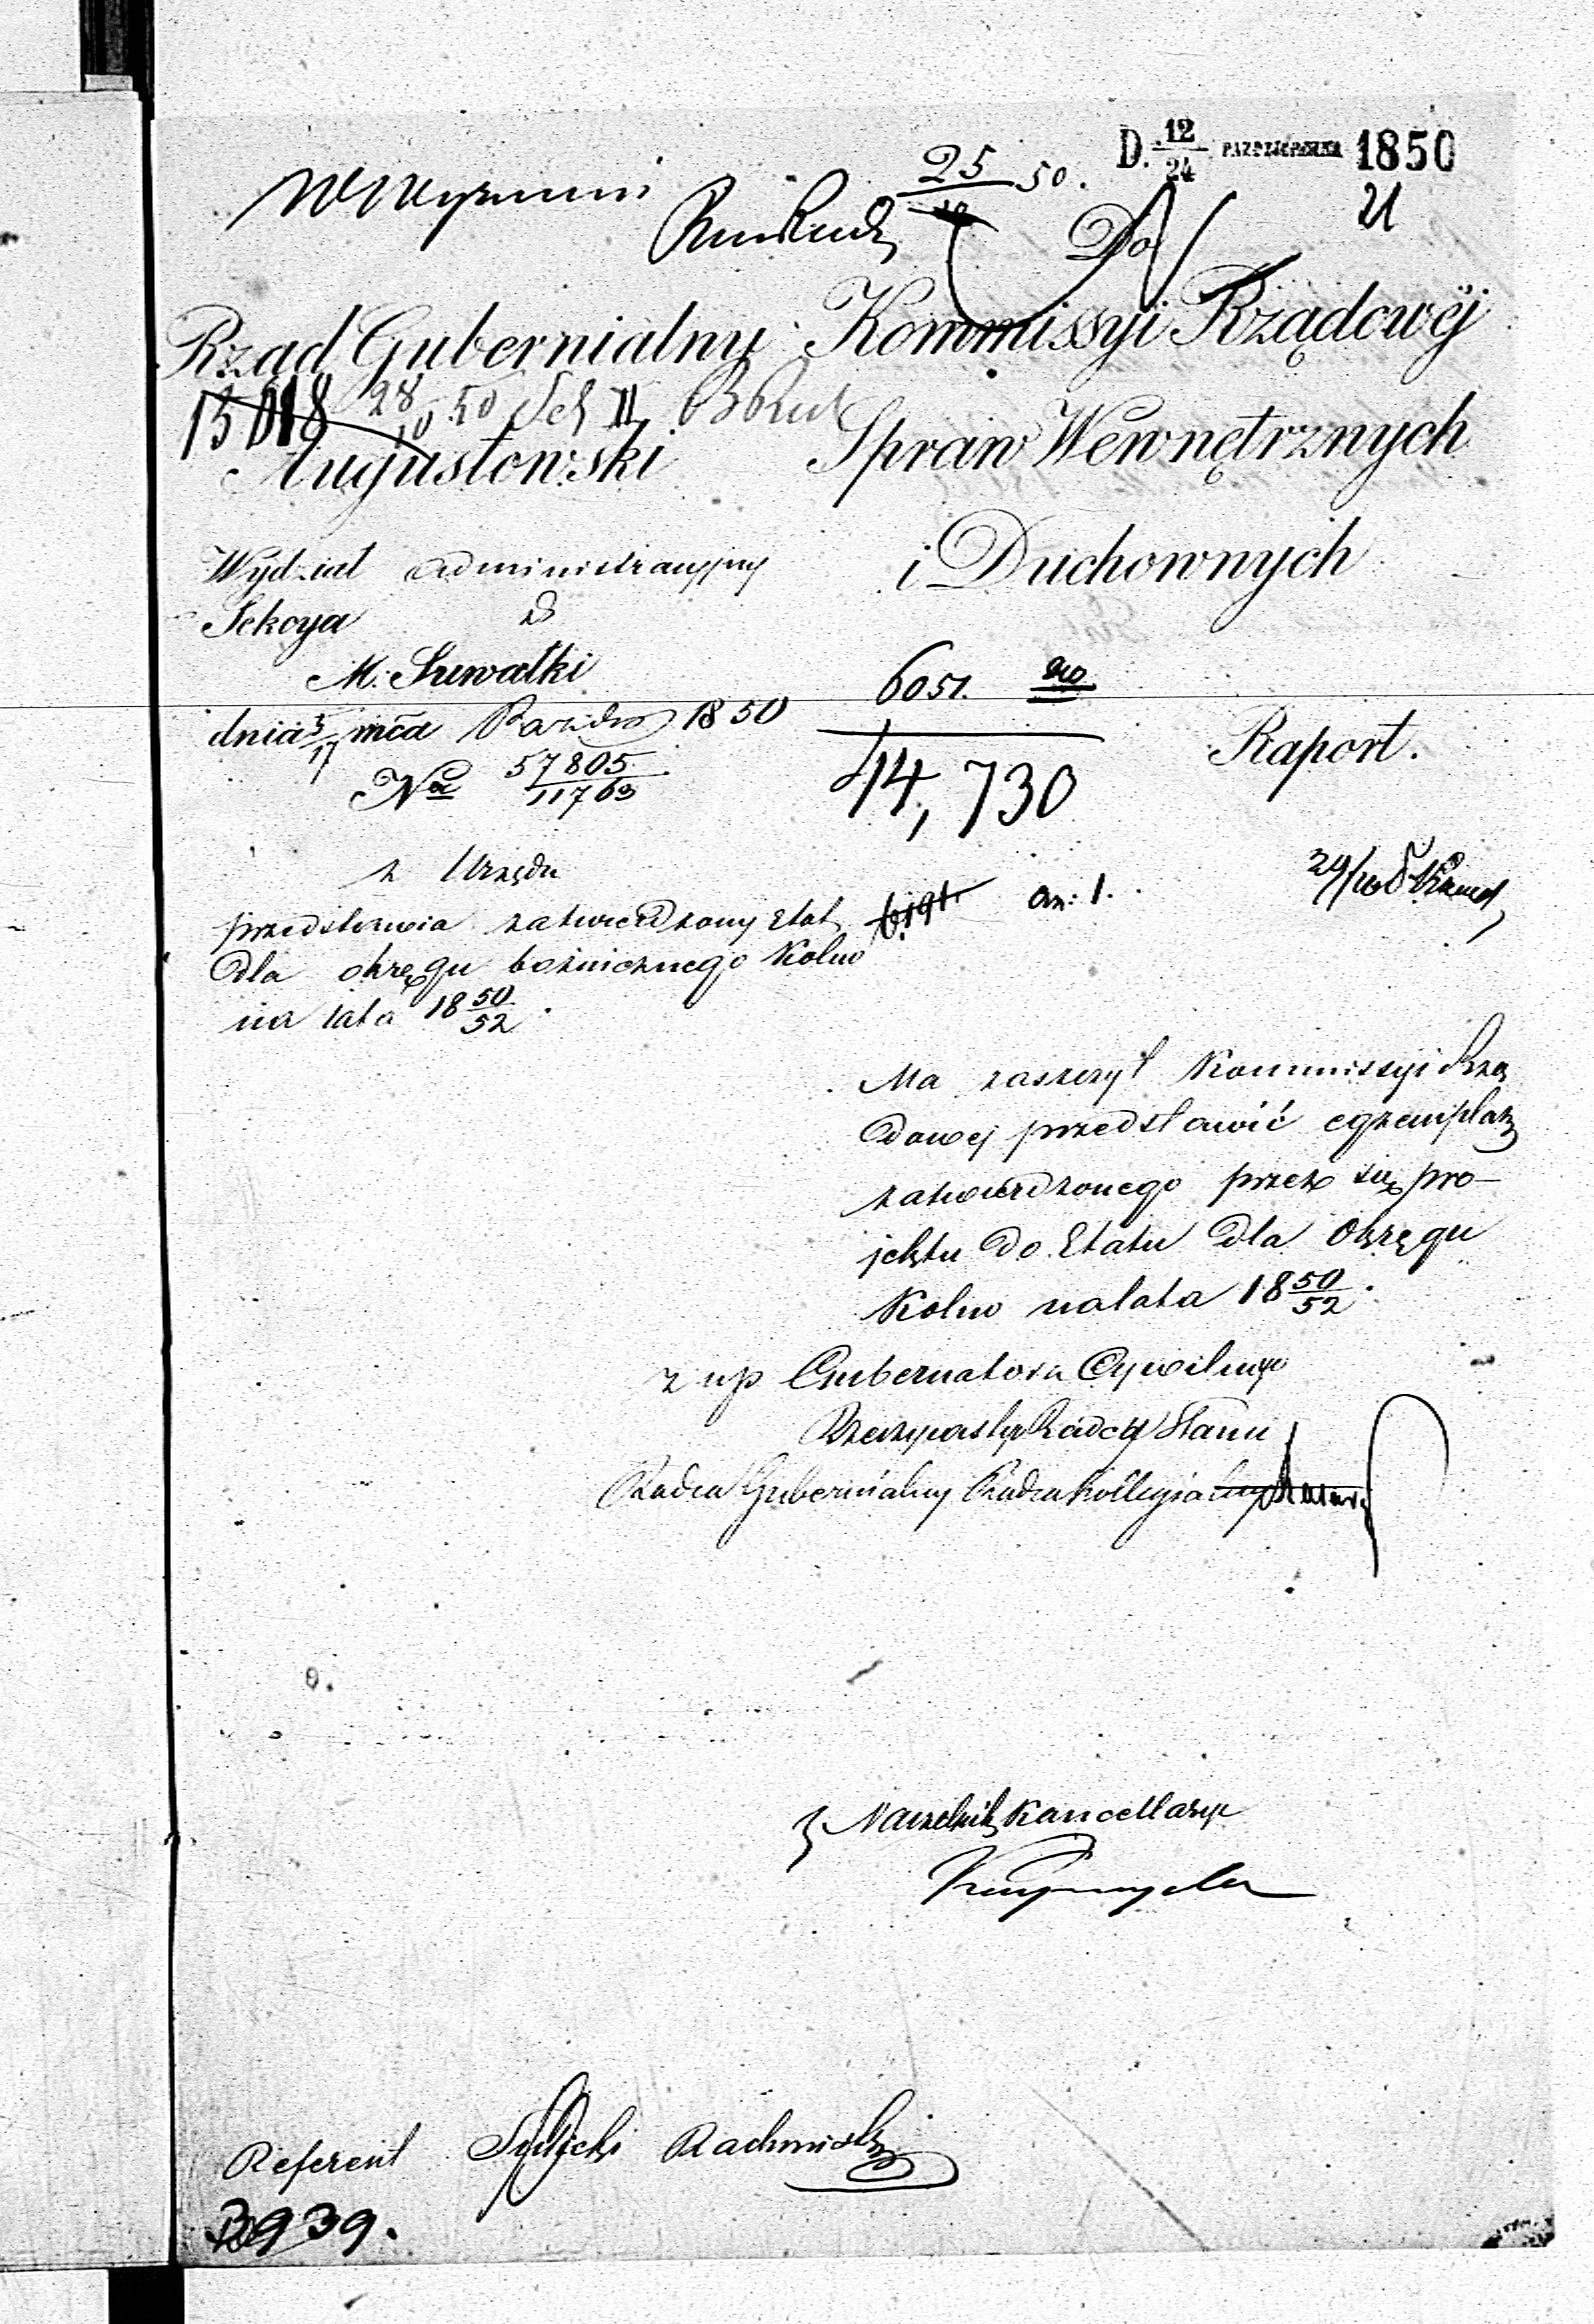 D. 12/24 PAZDZIERNIKA 1850
21
25 50.
Do
Rząd Gubernialny
Kommissyi Rządowéj
15018 28/10 50 Sek II
Augustowski
Spraw Wewnętrznych
i Duchownych
Wydział administracyjny
Sekcya
M. Suwałki
dnia 5/17 mca Pazdra 1850
No 57805/11763
6051.
14,730
Raport.
z Urzędu
przedstawia zatwierdzony Etat
an: 1.
dla okręgu bożnicznego Kolno
na lata 18 50/52.
Ma zaszczyt Kommissyi Rzą
dowej przedstawić egzemplarz
zatwierdzonego przez się pro-
jektu do Etatu dla Okręgu
Kolno na lata 18 50/52.
z up Gubernatora Cywilnego
Rzeczywistego Radcy Stanu
Radca Gubernialny Radca Kollegialny
Naczelnik Kancellaryi
Referent
3939.